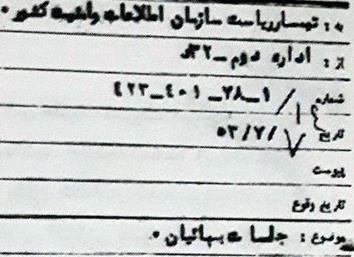 به : تیمسار ریاست سازمان اطلاعات و امنیت کشور ٠
از : اداره دوم ـ ٣٢
شماره ١ـ٧٨ـ ٤٠١ـ٤٢٣
تاریخ ٥٣/٧/
پیوست
تاریخ وقوع
موضوع : جلسات بهائیان ٠